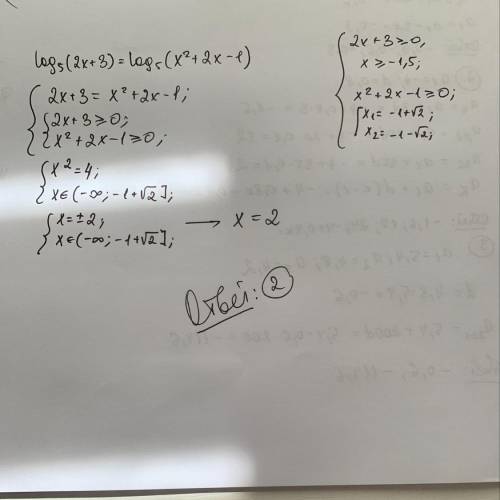 log₅(2x+3)=log₅(x²+2x-1)
2x+3=x²+2x-1;
2x+3≥0;
x²+2x-1≥0;
x²=4;
x∈(-∞;-1+√2];
x=±2;
x∈(-∞;-1+√2]; → x=2
Ответ: 2
2x+3≥0,
x≥-1,5;
x²+2x-1≥0;
x₁=-1+√2;
x₂=-1-√2;